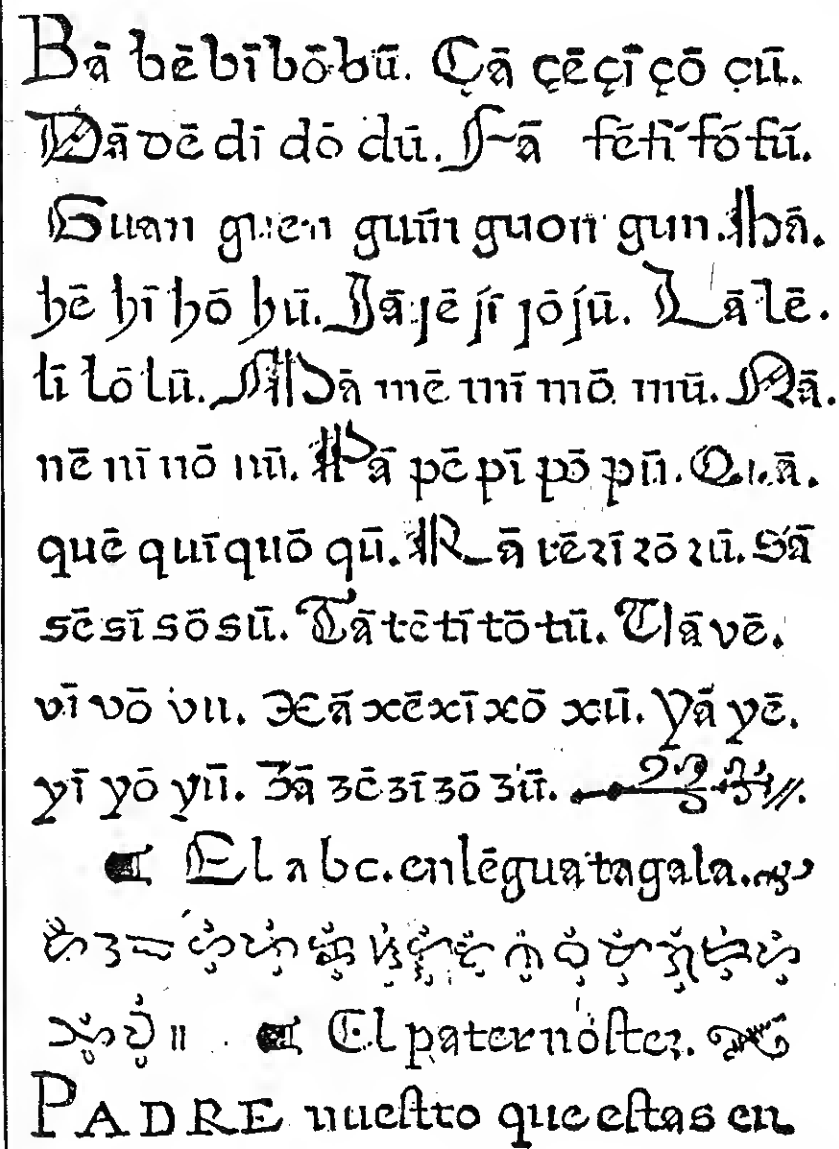 Bā bē bī bō bū. Çā çē çī çō çū.
Dā dē dī dō dū. Fā fē fī fō fū.
Guan guen guīn guon gun. Hā.
hē hī hō hū. Jā jē jī jō jū. Lā lē.
lī lō lū. Mā mē mī mō mū. Nā.
nē nī nō nū. Pā pē pī pō pū. Quā.
quē quī quō qū. Rā rē rī rō rū. Sā
sē sī sō sū. Tā tē tī tō tū. Vā vē.
vī vō vu. Xā xē xī xō xū. Yā yē.
yī yō yū. Zā zē zī zō zū.
El abc. en lēgua tagala.
ᜀ ᜂ ᜁ ᜑᜒᜓ ᜉᜒᜓ ᜃᜒᜓ ᜐᜒᜓ ᜎᜒᜓ ᜆᜒᜓ ᜈᜒᜓ ᜊᜒᜓ ᜋᜒᜓ ᜄᜒᜓ ᜇᜒᜓ ᜌᜒᜓ
ᜅᜒᜓ ᜏᜒᜓ ᜶ El pater noſter.
PADRE nueſtro que eſtas en